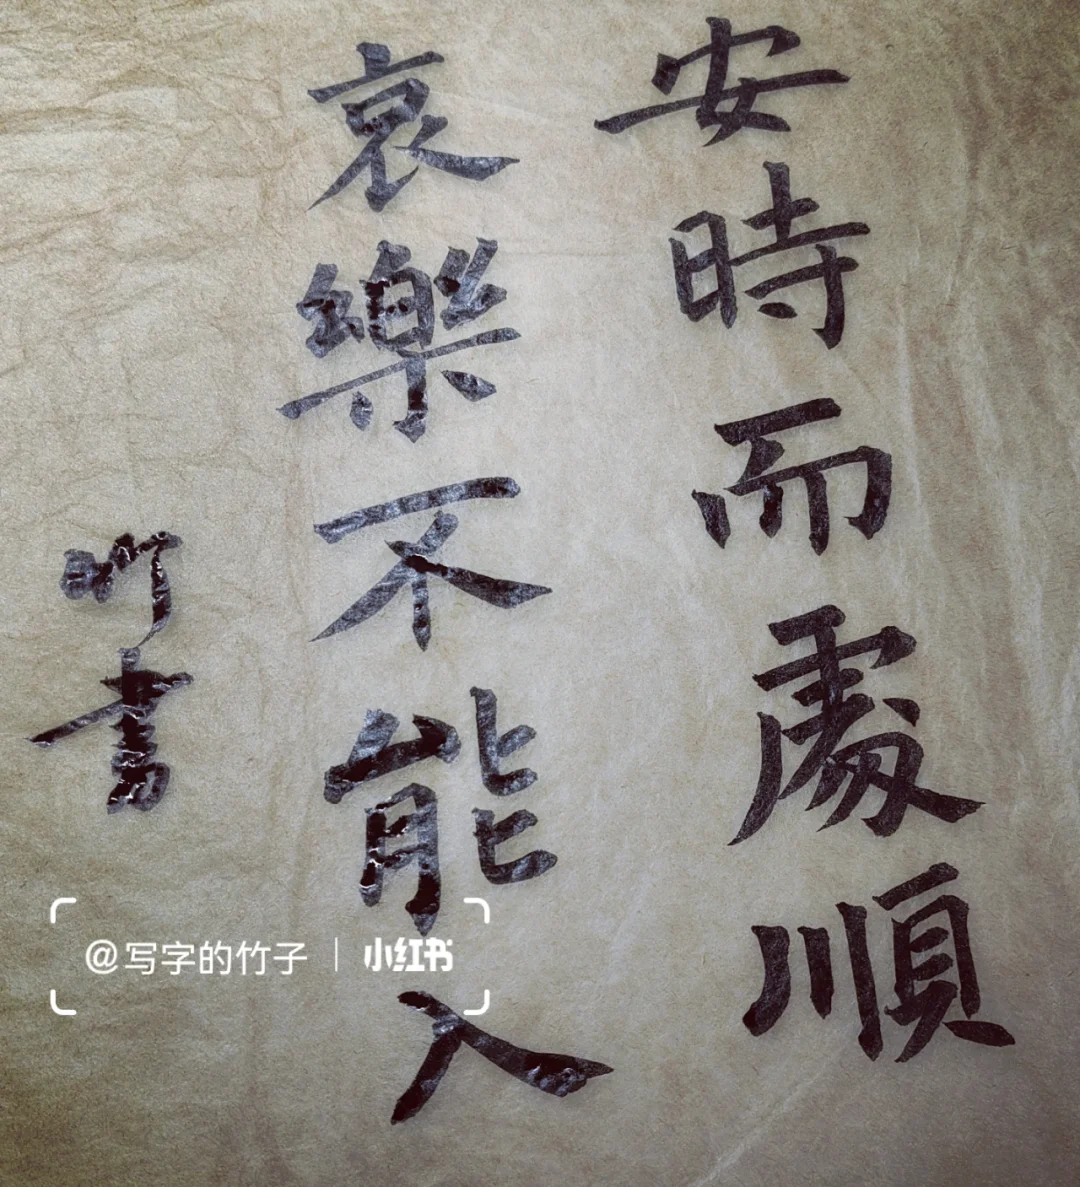 安時而處順
哀樂不能入
竹書
@写字的竹子 | 小红书